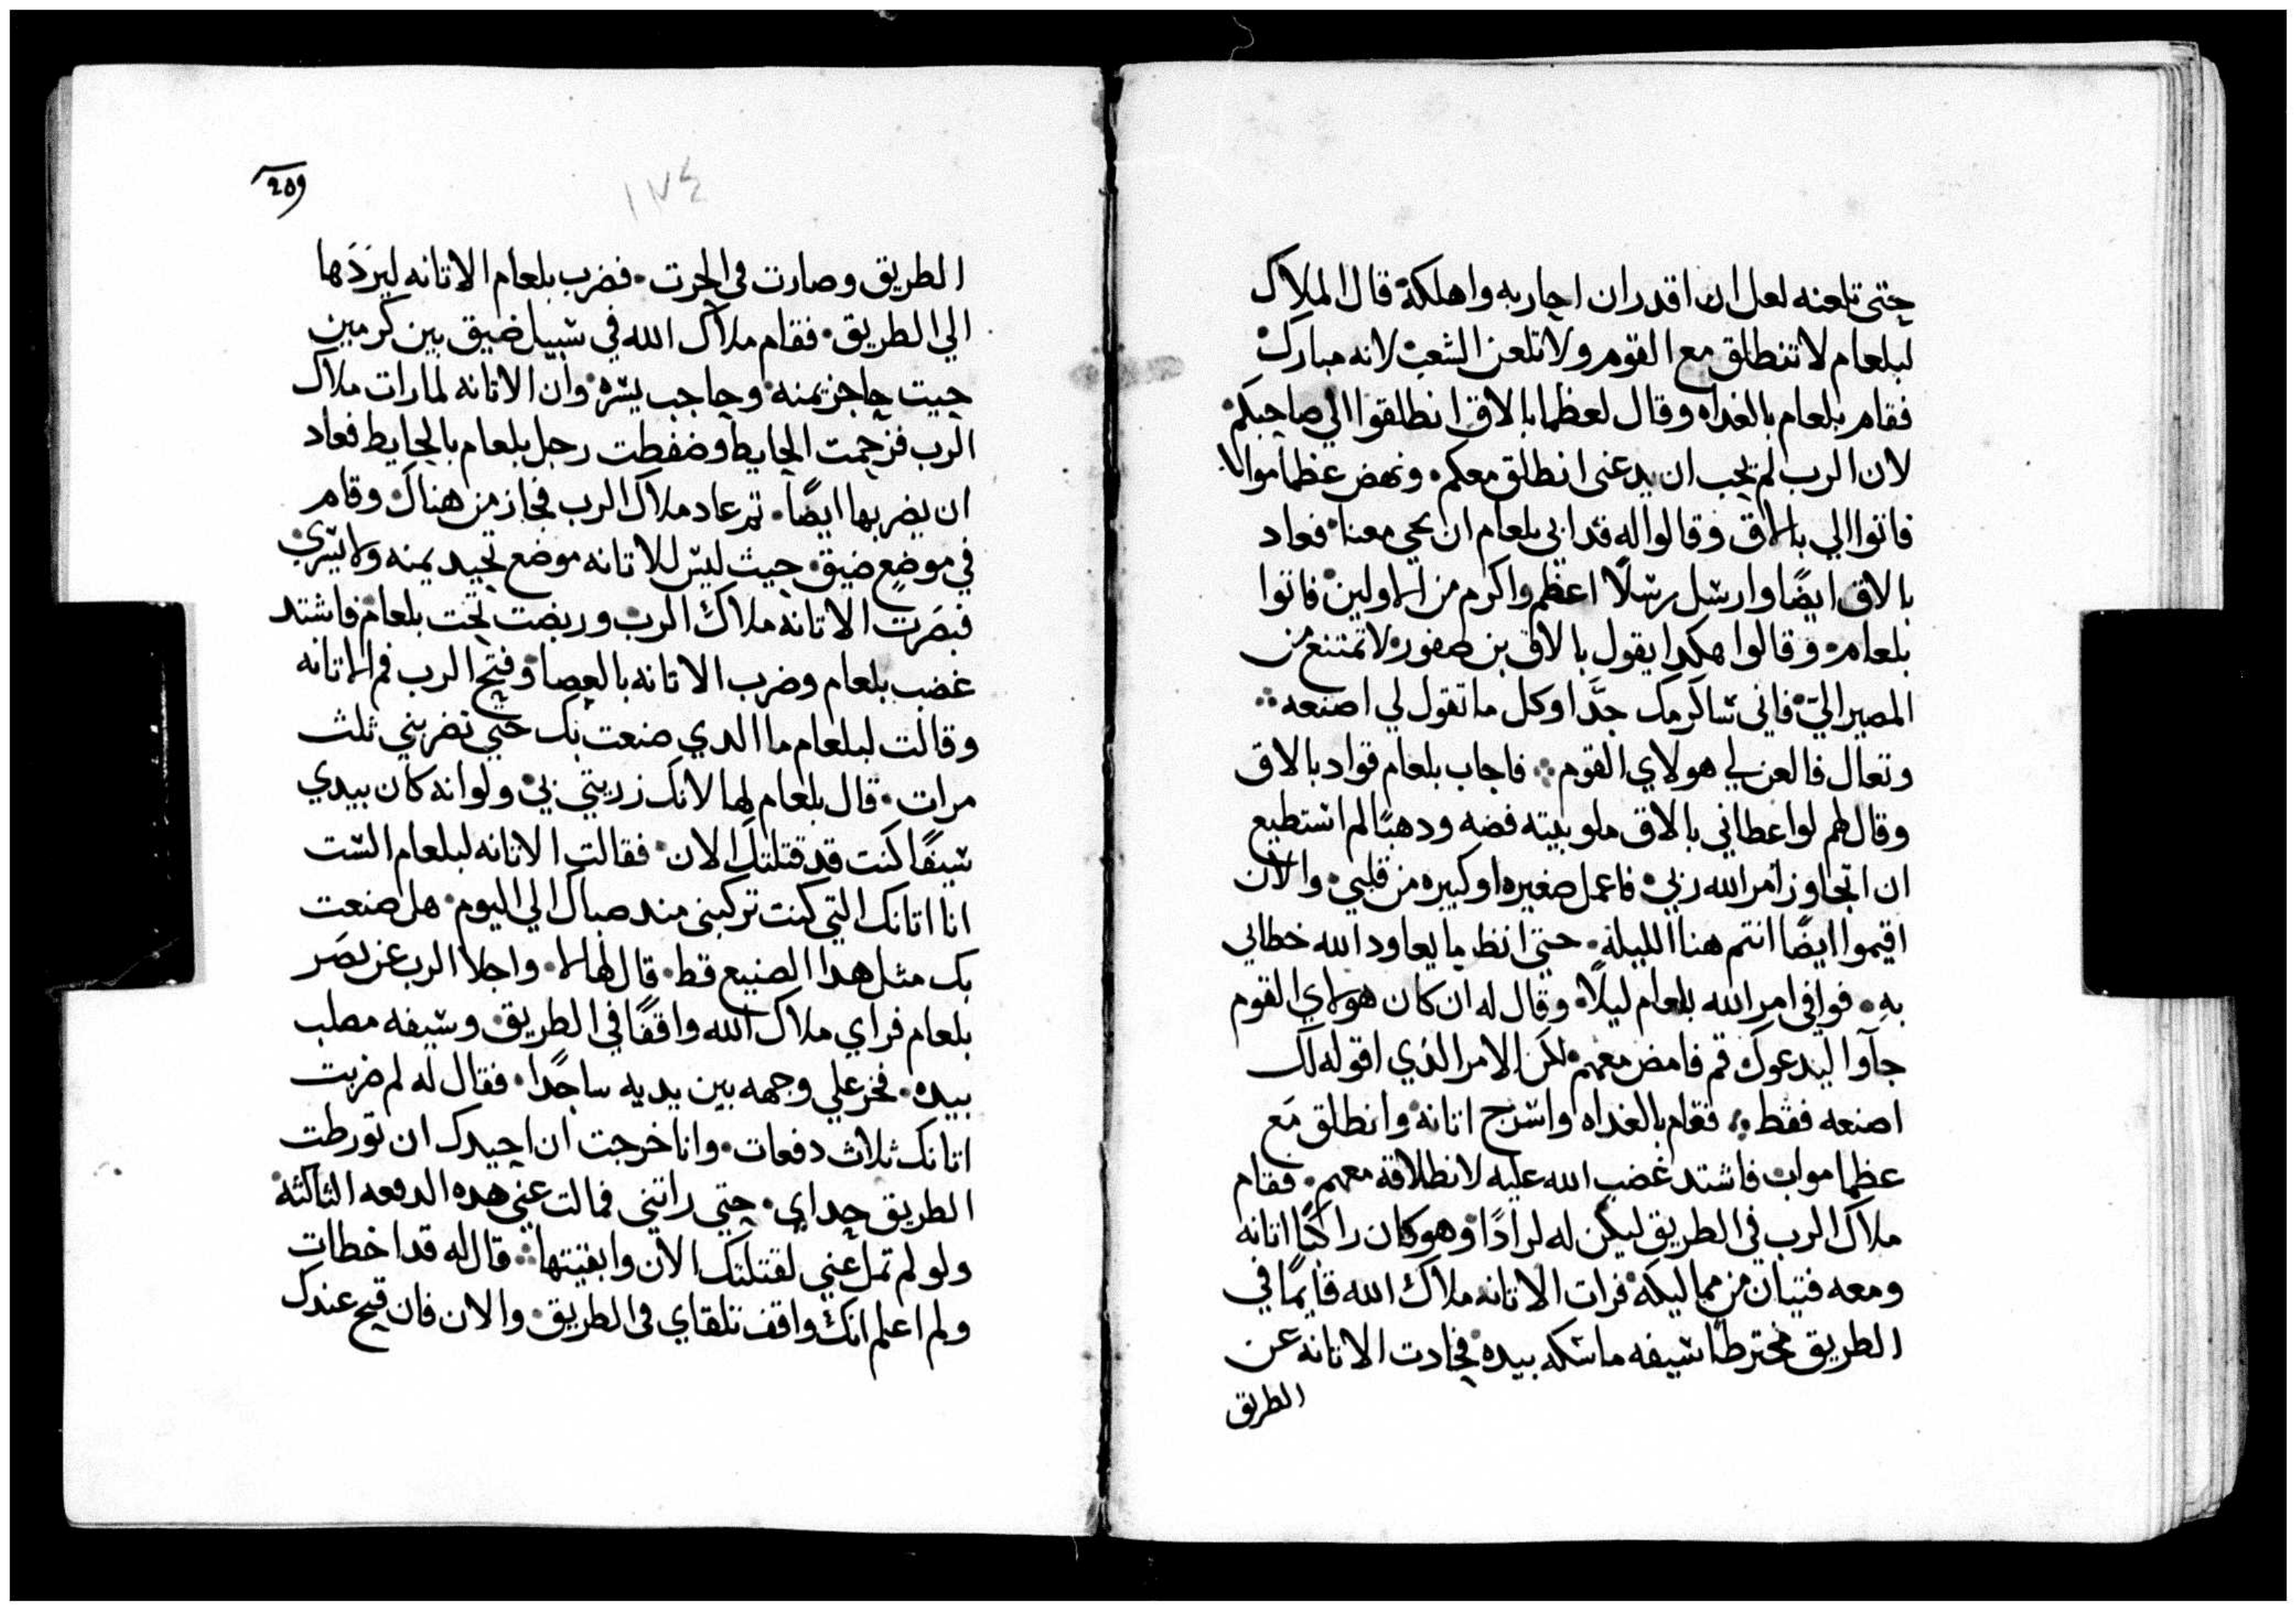 حتى تلعنه لعل ان اقدر ان احاربه واهلكه قال الملاك
لبلعام لا تنطلق مع القوم ولا تلعن الشعب لانه مبارك
فقام بلعام بالغداه وقال لعظما بالاق انطلقوا الي صاحبكم
لان الرب لم يحب ان يدعنى انطلق معكم ونهض عظما مواب
فاتوا الي بالاق وقالوا له قد ابي بلعام ان يجي معنا فعاد
بالاق ايضًا وارسل رسلًا اعظم واكرم من الاولين فاتوا
بلعام وقالوا هكدا يقول بالاق بن صفور لا تمتنع من
المصير اليّ فاني ساكرمك جدًا وكل ما تقول لي اصنعه
وتعال فالعن لي هولاي القوم فاجاب بلعام قواد بالاق
وقال لهم لو اعطاني بالاق ملو بيته فضه ودهبًا لم استطيع
ان اتجاوز امر الله ربي فاعمل صغيره او كبيره من قلبي والان
اقيموا ايضًا انتم هنا الليلة حتى انظر ما يعاود الله خطابي
بهِ فوافي امر الله بلعام ليلًا وقال له ان كان هولاي القوم
جآوا ليدعوك قم فامض معهم لكن الامر الذي اقوله لك
اصنعه فقط فقام بالغداه واسرج اتانه وانطلق مع
عظما مواب فاشتد غضب الله عليه لانطلاقه معهم فقام
ملاك الرب في الطريق ليكن له لرادًا وهو كان راكبًا اتانه
ومعه فتيان من مماليكه فرات الاتانه ملاك الله قايمًا في
الطريق مخترطًا سيفه ماسكه بيده فحادت الاتانه عن
الطريق
259
١٧٤
الطريق وصارت في الحرت فضرب بلعام الاتانه ليردَها
الي الطريق فقام ملاك الله في سبيل ضيق بين كرمين
حيت حاجز يمنه وحاجب يسره وان الاتانه لما رات ملاك
الرب فزحمت الحايط وضغطت رجل بلعام بالحايط فعاد
ان يضربها ايضًا تم عاد ملاك الرب فجاز من هناك وقام
في موضع ضيق حيث ليس للاتانه موضع تحيد يمنه ولا يسري
فبصَرت الاتانه ملاك الرب وربضت تحت بلعام فاشتد
غضب بلعام وضرب الاتانه بالعصا وفتح الرب فم الاتانه
وقالت لبلعام ما الدي صنعت بك حتي تضربني ثلث
مرات قال بلعام لها لانك زريتي بي ولو انه كان بيدي
سيفًا كنت قد قتلتك الان فقالت الاتانه لبلعام الست
انا اتانك التي كنت تركبني مند صباك الي اليوم هل صنعت
بك مثل هدا الصنيع قط قال لها لا واجلا الرب عن بصَر
بلعام فراي ملاك الله واقفًا في الطريق وسيفه مصلب
بيده فخر علي وجهه بين يديه ساجدًا فقال له لم ضربت
اتانك ثلاث دفعات وانا خرجت ان احيدك ان تورطت
الطريق حداي حتي راتني فمالت عني هده الدفعه الثالثة
ولو لم تمل عني لقتلتك الان وابقيتها قال له قد اخطات
ولم اعلم انك واقف تلقاي في الطريق والان فان قبح عندك